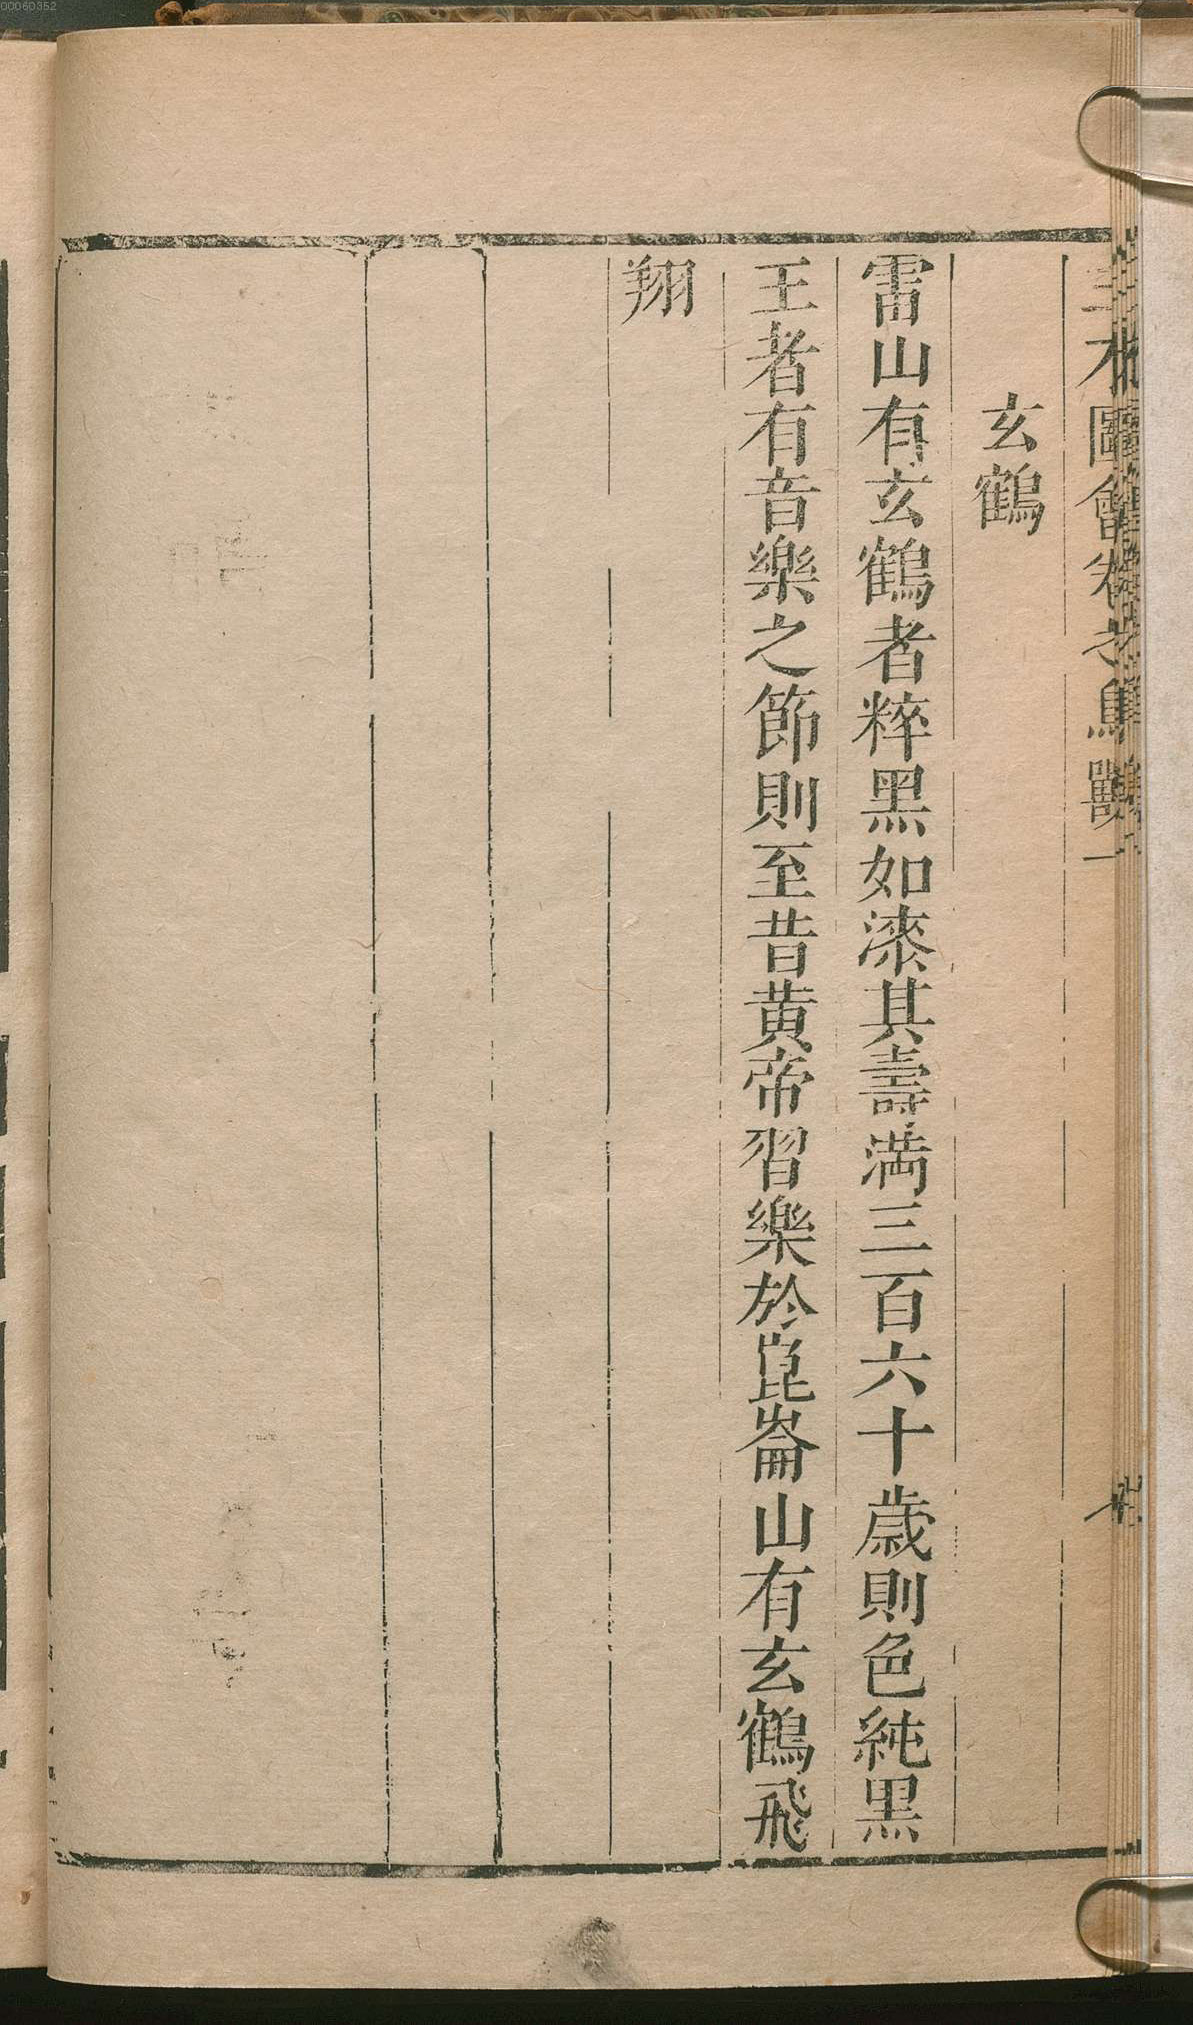 00060352
圖會卷之鳥獸一
玄鶴
雷山有玄鶴者粹黑如漆其壽滿三百六十歲則色純黑
王者有音樂之節則至昔黃帝習樂於崑崙山有玄鶴飛
翔